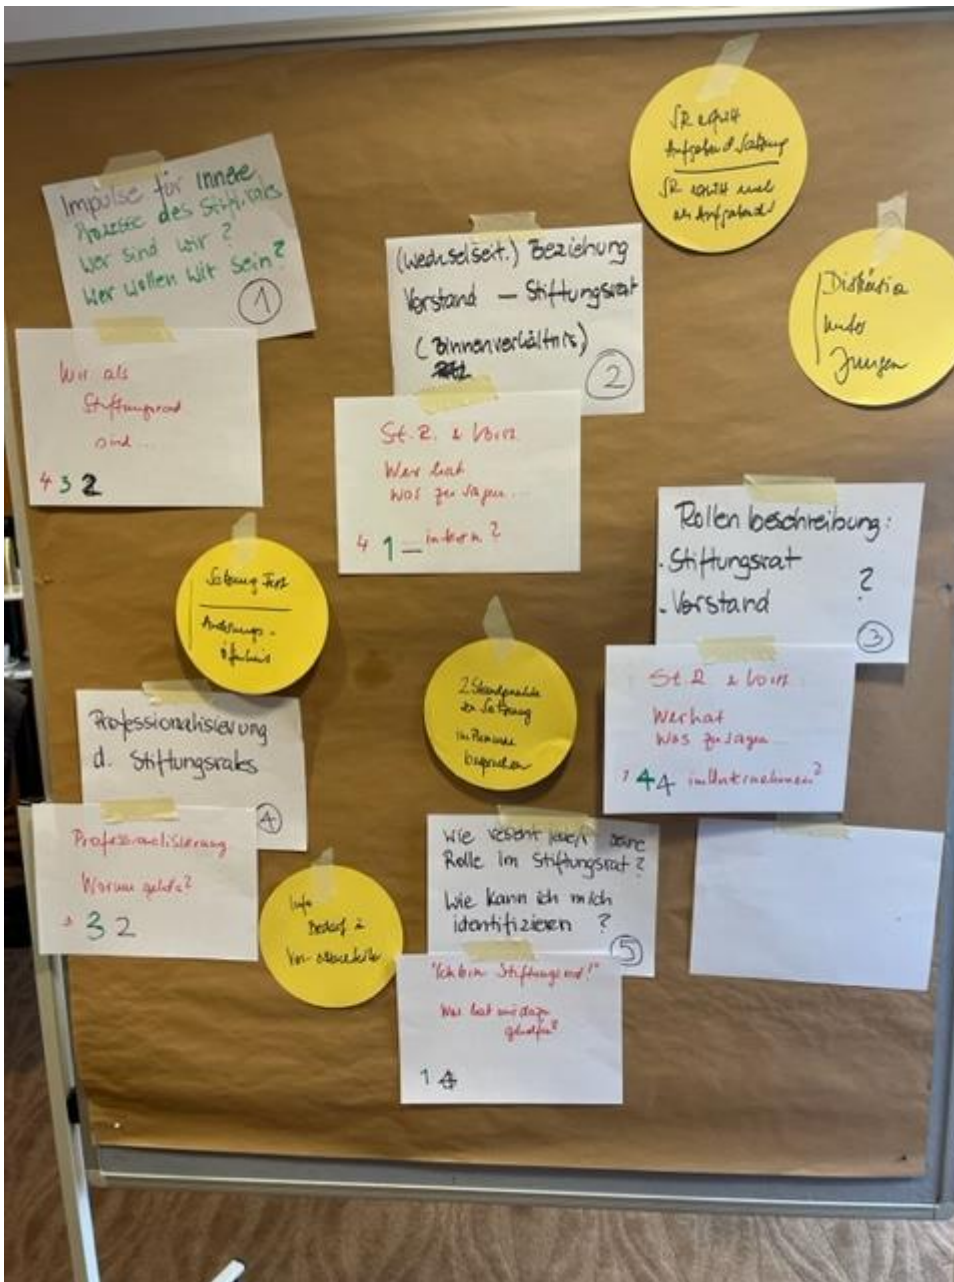 Impulse für innere
Prozesse des Stift.rates
Wer sind wir?
Wer wollen wir sein?
1
Wir als
Stiftungsrat
sind...
4 3 2
(wechselseit.) Beziehung
Vorstand — Stiftungsrat
(Binnenverhältnis)
2
St.R. & Vorst.
Wer hat
was zu sagen...
intern?
4 1 —
SR
Aufgaben d. Satzung
SR
als Aufgaben
Diskussion
unter
Jungen
Rollenbeschreibung:
- Stiftungsrat
- Vorstand ?
3
St.R & Vorst.
Wer hat
was zu sagen...
im Unternehmen?
1 4 4
Satzung
Änderungs-
2 Standpunkte
der Satzung
im Plenum
besprechen
Professionalisierung
d. Stiftungsrates
4
Professionalisierung
Warum geht's?
3 2
Info
Bedarf
Wie versteht jede/r seine
Rolle im Stiftungsrat?
Wie kann ich mich
identifizieren ?
5
"Ich bin Stiftungsrat!"
Was hat mir dazu
geholfen?
1 4